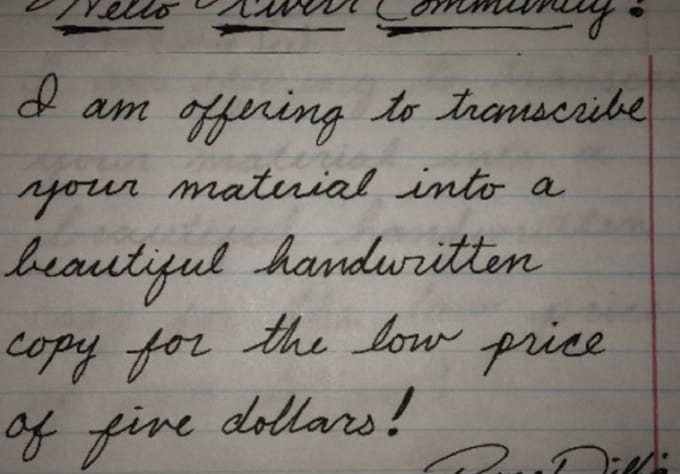 Hello Fiverr Community!
I am offering to transcribe
your material into a
beautiful handwritten
copy for the low price
of five dollars!